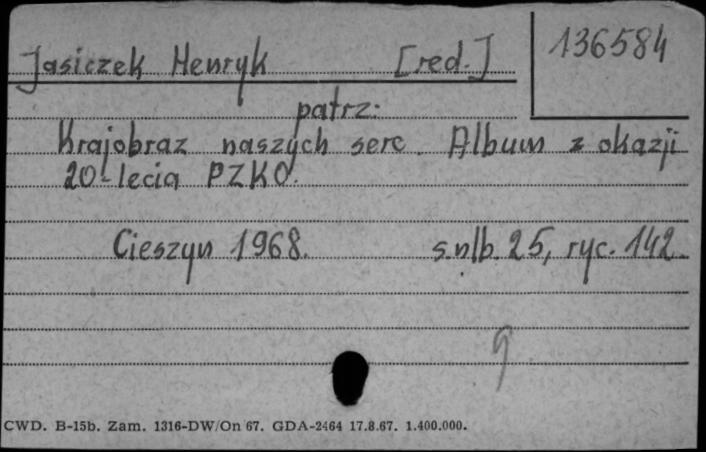 Jasiczek Henryk [red.] 136584
patrz:
Krajobraz naszych serc. Album z okazji
20-lecia PZKO.
Cieszyn 1968. s.nlb. 25, ryc. 142.
CWD. B-15b. Zam. 1316-DW/On 67. GDA-2464 17.8.67. 1.400.000.